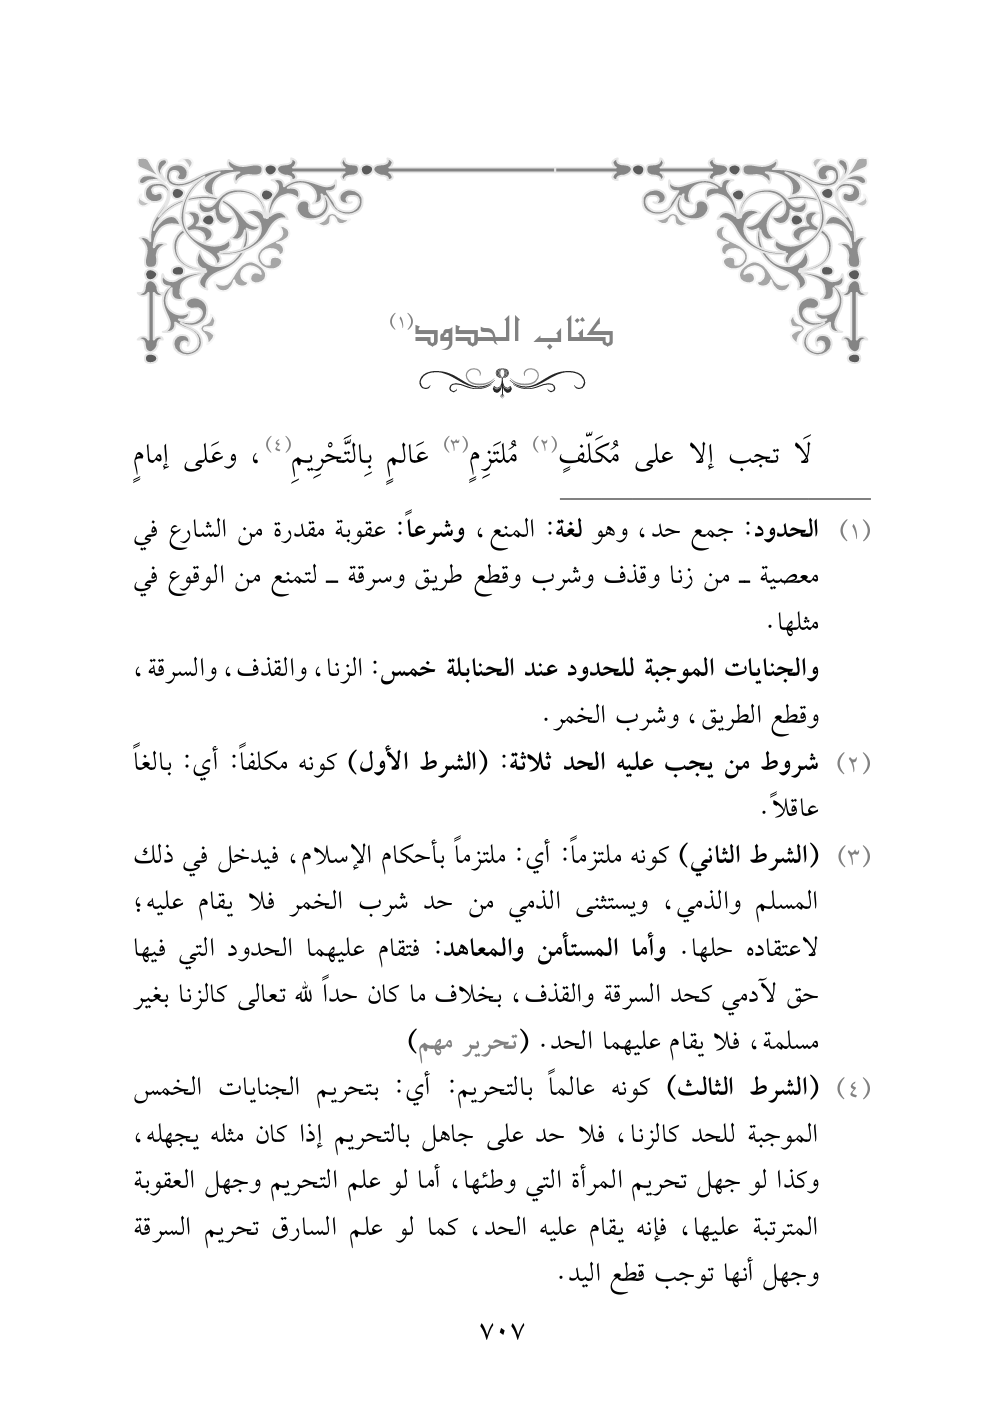 كتاب الحدود(١)
لَا تجب إلا على مُكَلّفٍ(٢) مُلتَزِمٍ(٣) عَالمٍ بِالتَّحْرِيمِ(٤)، وعَلى إمامٍ
(١) الحدود: جمع حد، وهو لغة: المنع، وشرعاً: عقوبة مقدرة من الشارع في
معصية ــ من زنا وقذف وشرب وقطع طريق وسرقة ــ لتمنع من الوقوع في
مثلها.
والجنايات الموجبة للحدود عند الحنابلة خمس: الزنا، والقذف، والسرقة،
وقطع الطريق، وشرب الخمر.
(٢) شروط من يجب عليه الحد ثلاثة: (الشرط الأول) كونه مكلفاً: أي: بالغاً
عاقلاً.
(٣) (الشرط الثاني) كونه ملتزماً: أي: ملتزماً بأحكام الإسلام، فيدخل في ذلك
المسلم والذمي، ويستثنى الذمي من حد شرب الخمر فلا يقام عليه؛
لاعتقاده حلها. وأما المستأمن والمعاهد: فتقام عليهما الحدود التي فيها
حق لآدمي كحد السرقة والقذف، بخلاف ما كان حداً لله تعالى كالزنا بغير
مسلمة، فلا يقام عليهما الحد. (تحرير مهم)
(٤) (الشرط الثالث) كونه عالماً بالتحريم: أي: بتحريم الجنايات الخمس
الموجبة للحد كالزنا، فلا حد على جاهل بالتحريم إذا كان مثله يجهله،
وكذا لو جهل تحريم المرأة التي وطئها، أما لو علم التحريم وجهل العقوبة
المترتبة عليها، فإنه يقام عليه الحد، كما لو علم السارق تحريم السرقة
وجهل أنها توجب قطع اليد.
٧٠٧